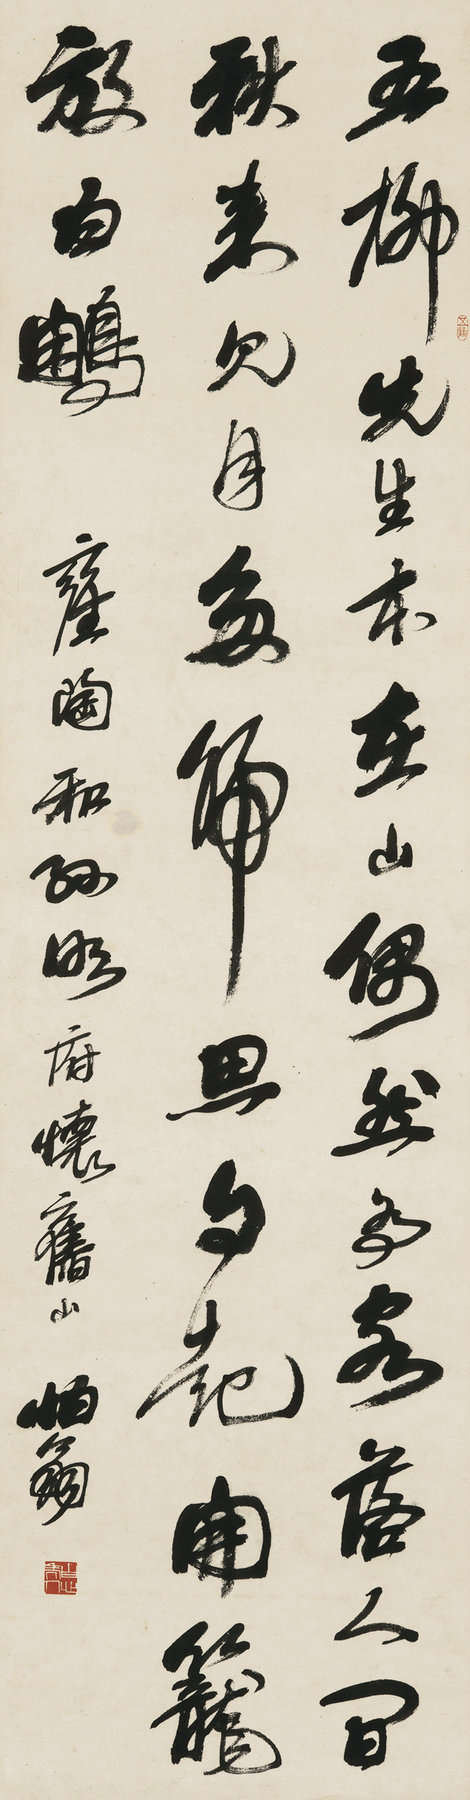 五柳先生本在山偶然為客落人間
秋來見月多歸思自起開籠
放白鷴
雍陶和孫明府懷舊山